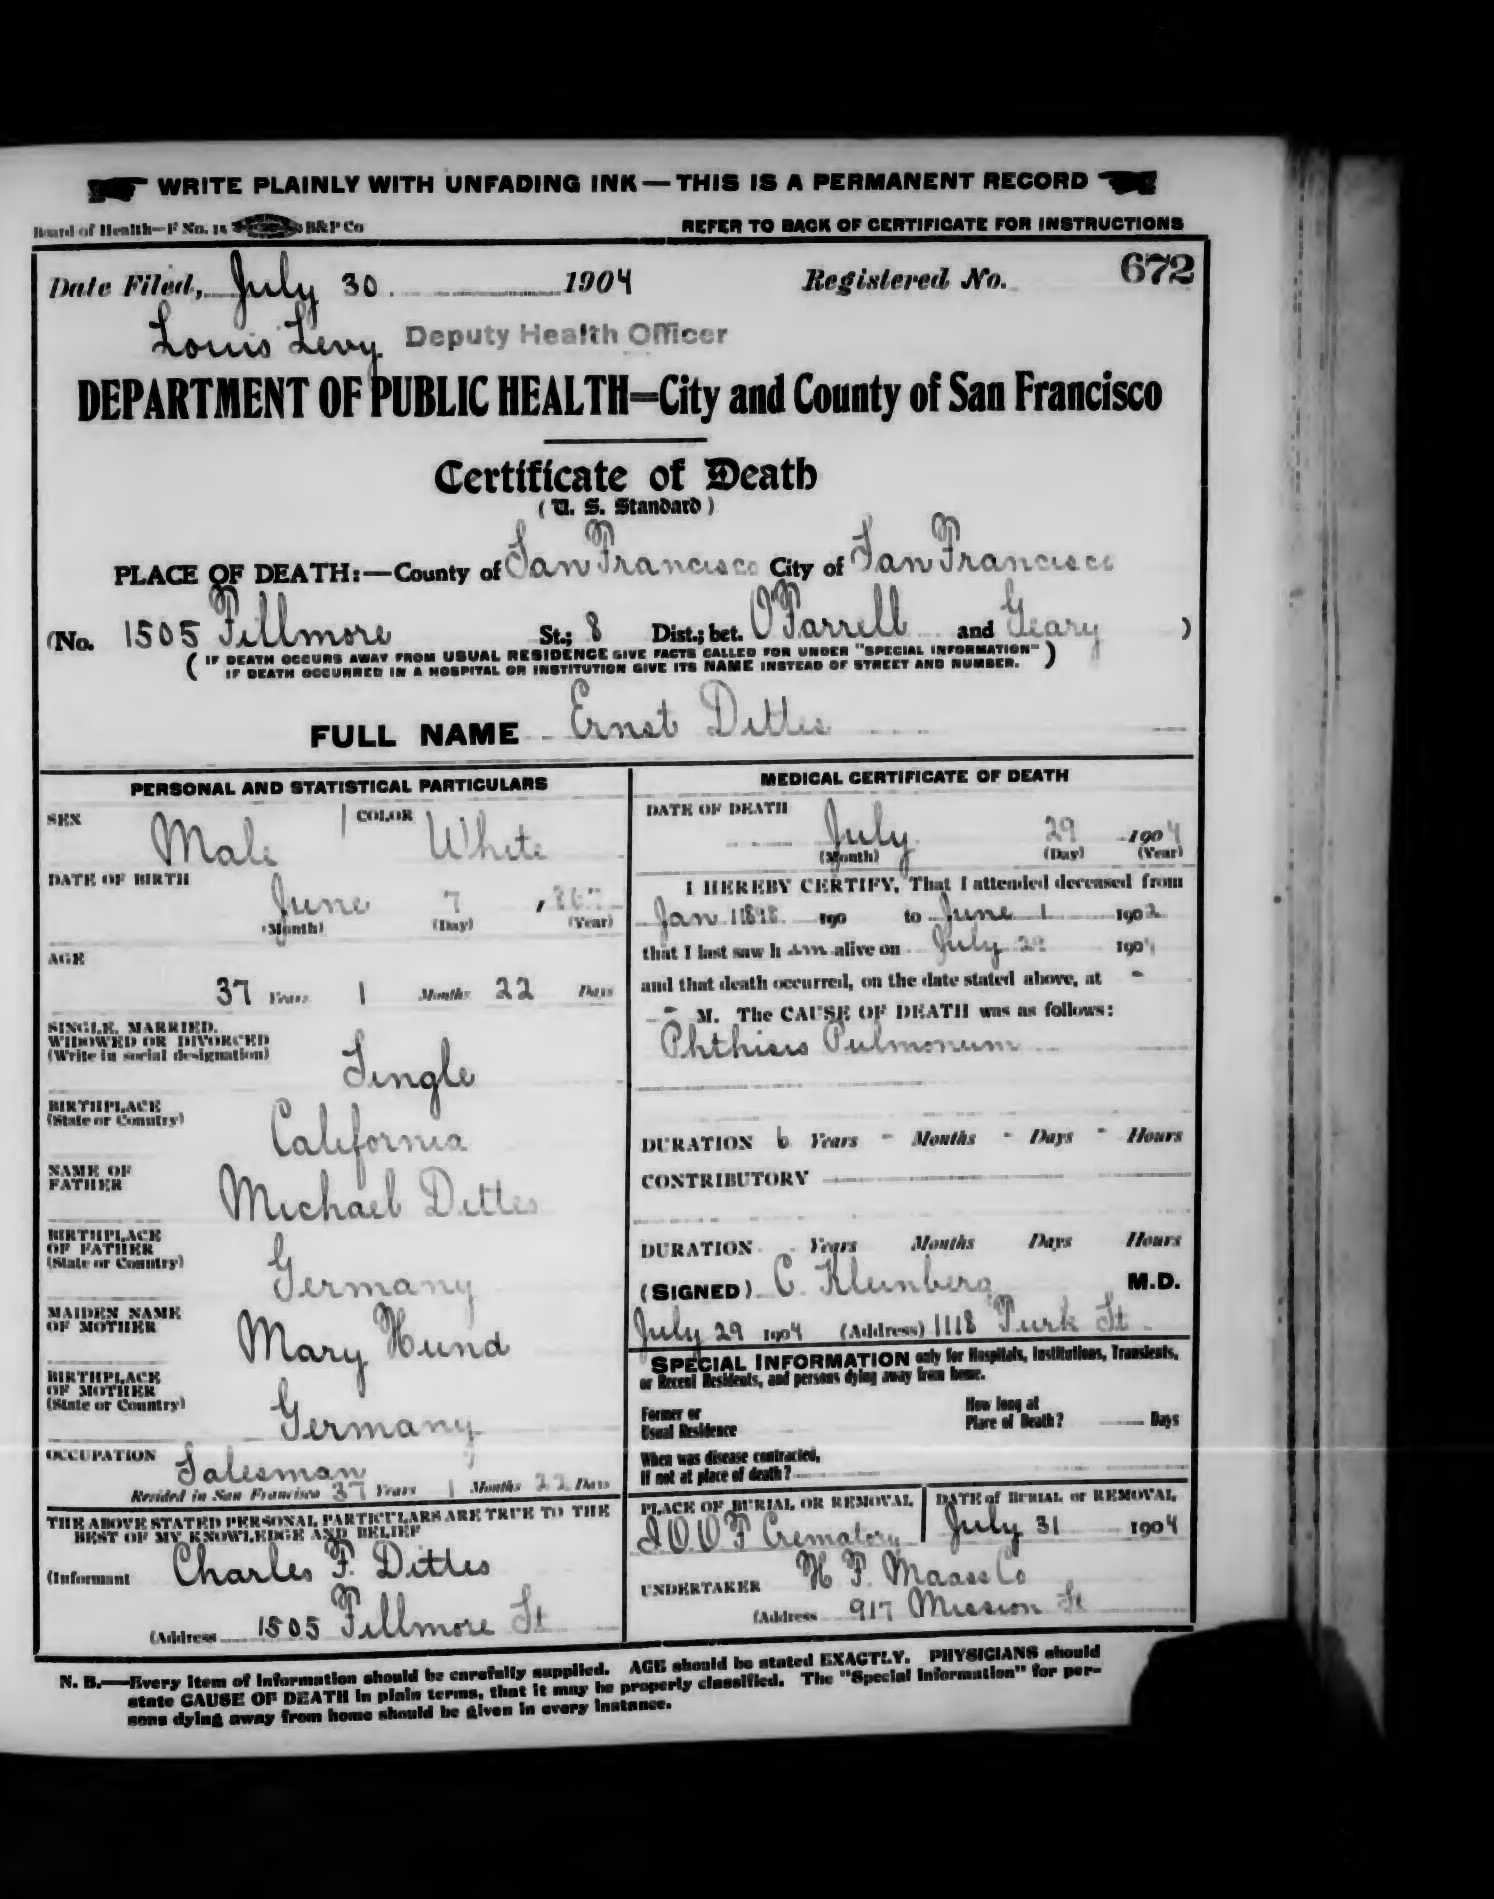 WRITE PLAINLY WITH UNFADING INK — THIS IS A PERMANENT RECORD
Board of Health—F No. 15 B&P Co REFER TO BACK OF CERTIFICATE FOR INSTRUCTIONS
Date Filed, July 30 1904 Registered No. 672
Louis Levy Deputy Health Officer
DEPARTMENT OF PUBLIC HEALTH=City and County of San Francisco
Certificate of Death
(U. S. Standard)
PLACE OF DEATH:—County of San Francisco City of San Francisco
(No. 1505 Fillmore St.; 8 Dist.; bet. O'Farrell and Geary )
( IF DEATH OCCURS AWAY FROM USUAL RESIDENCE GIVE FACTS CALLED FOR UNDER "SPECIAL INFORMATION" )
IF DEATH OCCURRED IN A HOSPITAL OR INSTITUTION GIVE ITS NAME INSTEAD OF STREET AND NUMBER.
FULL NAME Ernst Dittes
PERSONAL AND STATISTICAL PARTICULARS
SEX Male COLOR White
DATE OF BIRTH
June 7 , 867
(Month) (Day) (Year)
AGE
37 Years 1 Months 22 Days
SINGLE, MARRIED,
WIDOWED OR DIVORCED
(Write in social designation)
Single
BIRTHPLACE
(State or Country)
California
NAME OF
FATHER
Michael Dittes
BIRTHPLACE
OF FATHER
(State or Country)
Germany
MAIDEN NAME
OF MOTHER
Mary Hund
BIRTHPLACE
OF MOTHER
(State or Country)
Germany
OCCUPATION Salesman
Resided in San Francisco 37 Years 1 Months 22 Days
THE ABOVE STATED PERSONAL PARTICULARS ARE TRUE TO THE
BEST OF MY KNOWLEDGE AND BELIEF
(Informant Charles F. Dittes
(Address 1505 Fillmore St
MEDICAL CERTIFICATE OF DEATH
DATE OF DEATH
July 29 1904
(Month) (Day) (Year)
I HEREBY CERTIFY, That I attended deceased from
Jan 1 1898 190 to June 1 1902
that I last saw h im alive on July 29 1904
and that death occurred, on the date stated above, at -
- M. The CAUSE OF DEATH was as follows:
Phthisis Pulmonum
DURATION 6 Years - Months - Days - Hours
CONTRIBUTORY
DURATION Years Months Days Hours
(SIGNED) C. Kleinberg M.D.
July 29 1904 (Address) 1118 Turk St
SPECIAL INFORMATION only for Hospitals, Institutions, Transients,
or Recent Residents, and persons dying away from home.
Former or
Usual Residence
How long at
Place of Death? Days
When was disease contracted,
If not at place of death?
PLACE OF BURIAL OR REMOVAL
I O O F Crematory
DATE of BURIAL or REMOVAL
July 31 1904
UNDERTAKER H F. Maass Co
(Address 917 Mission St
N. B.—Every item of information should be carefully supplied. AGE should be stated EXACTLY. PHYSICIANS should
state CAUSE OF DEATH in plain terms, that it may be properly classified. The "Special Information" for per-
sons dying away from home should be given in every instance.